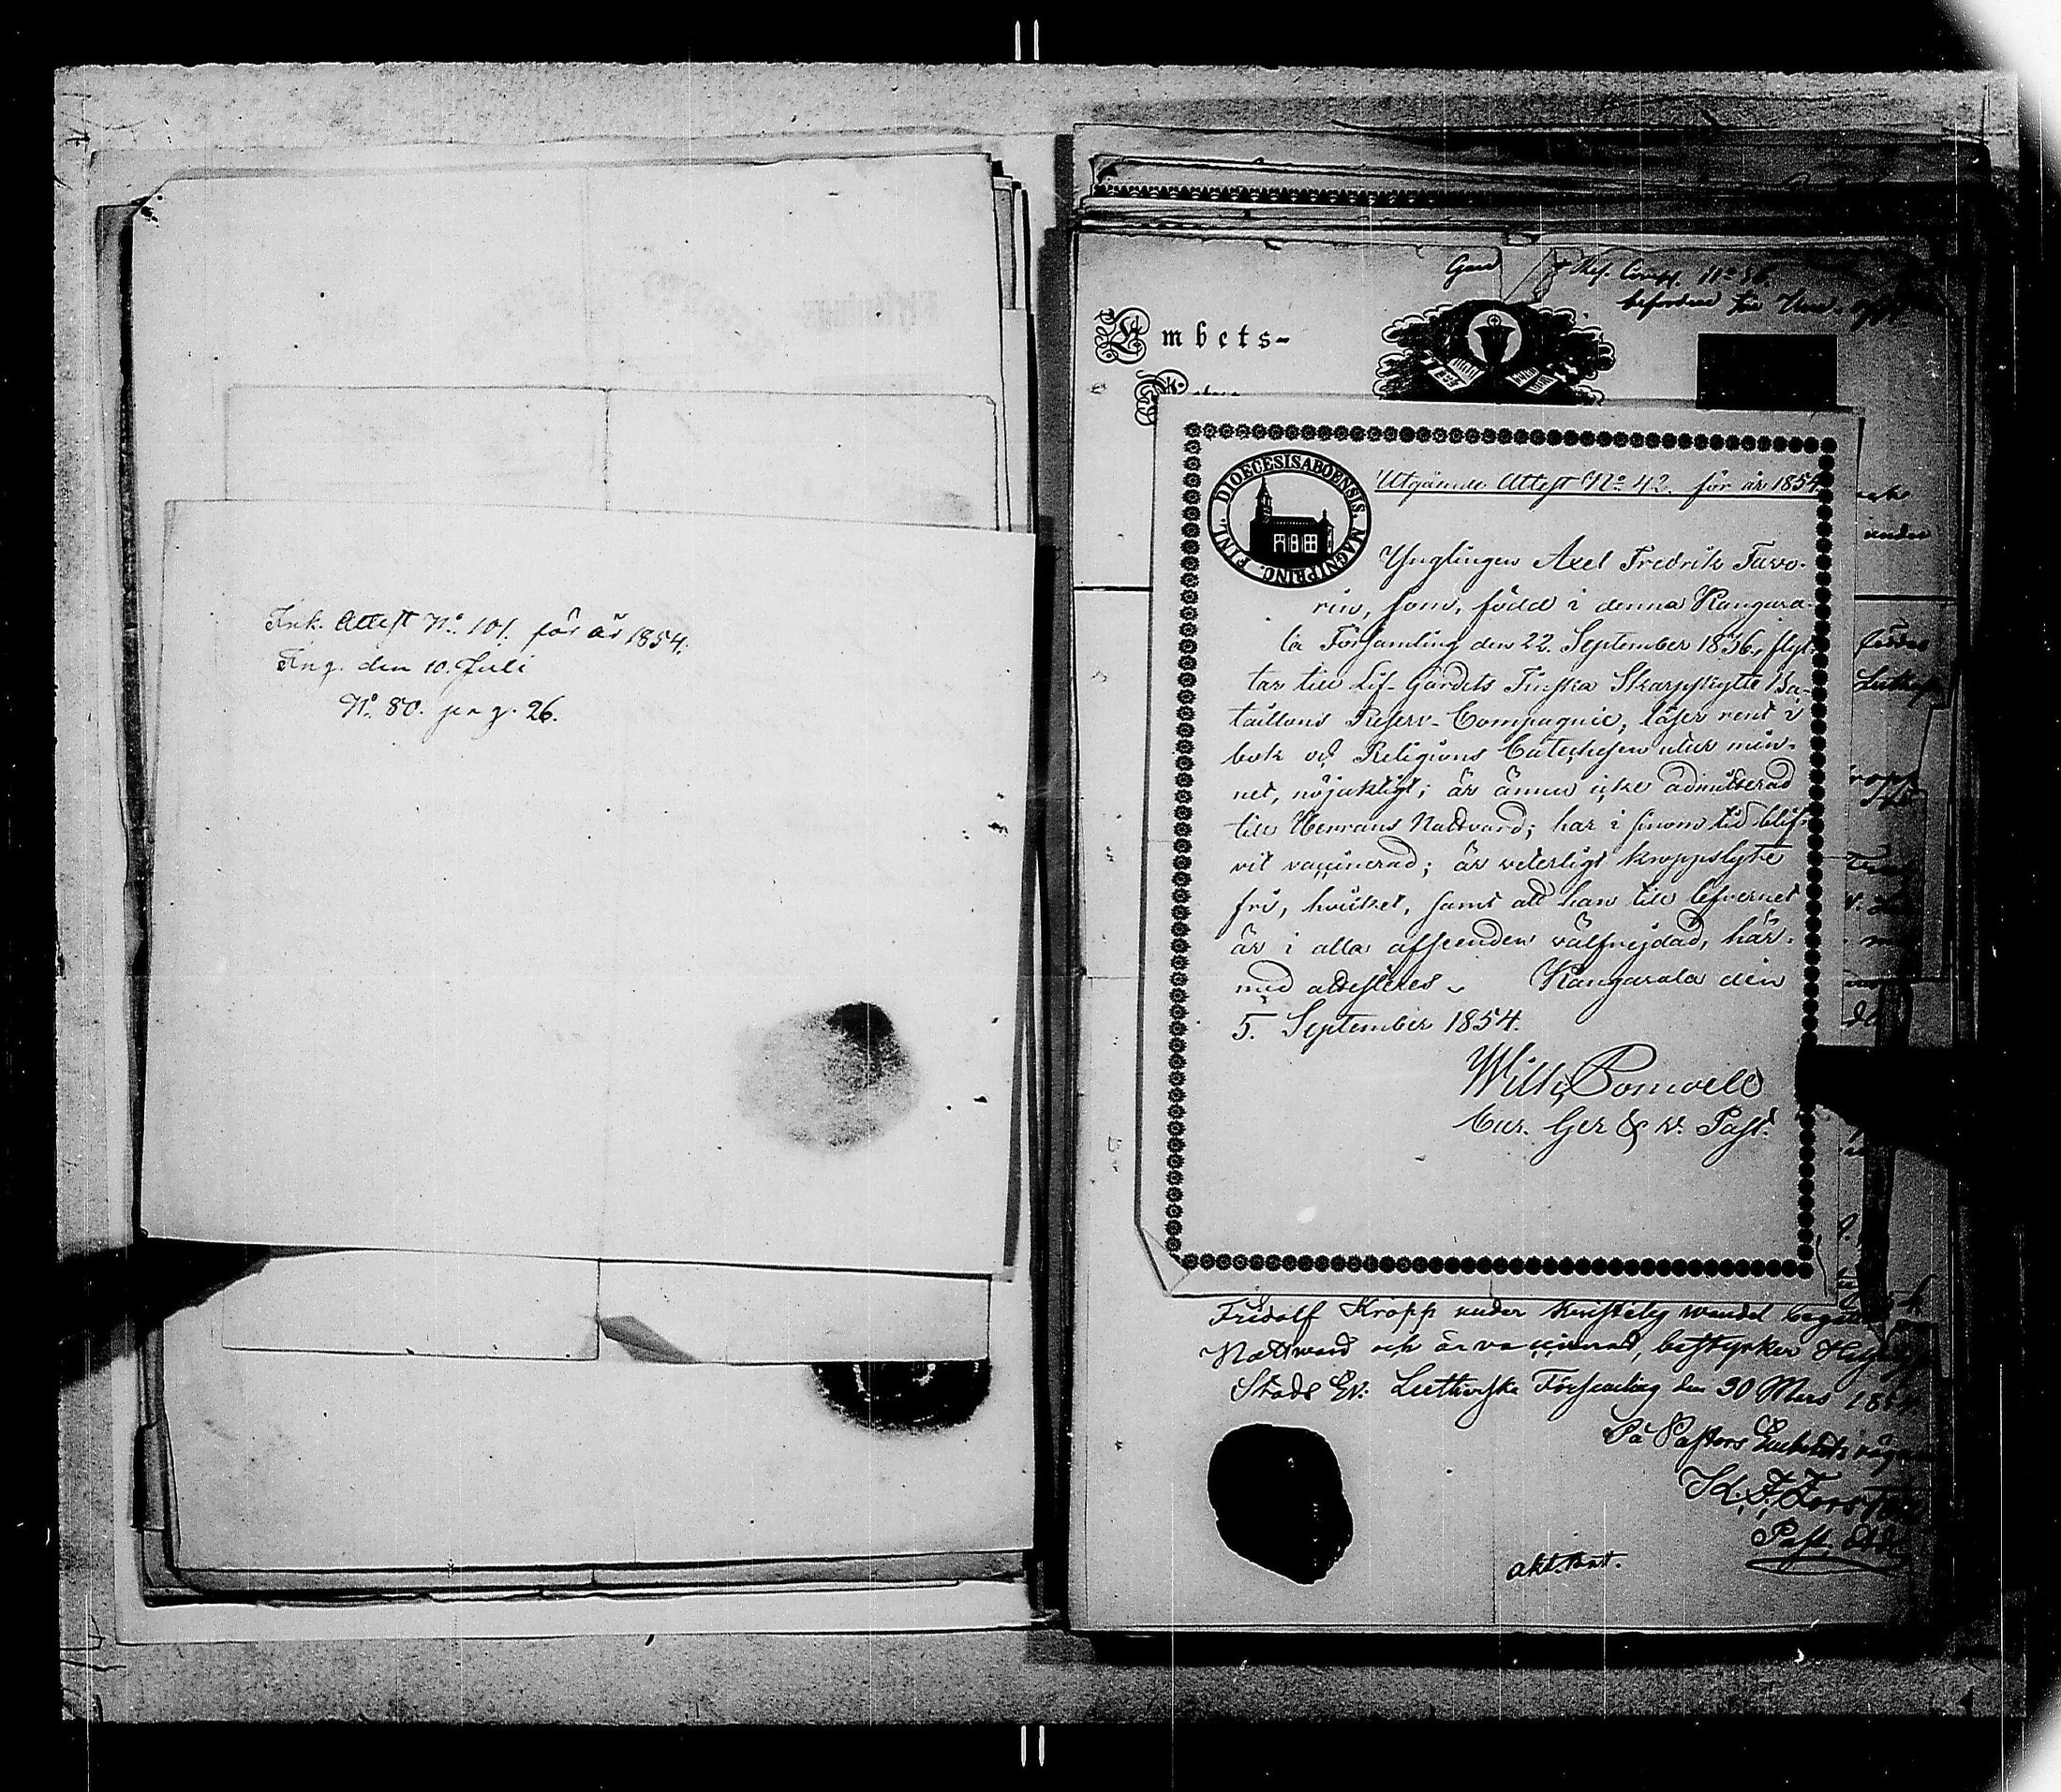 Ink. Attest No. 101. för år 1854.
Ing. den 10. Juli
No. 80. pag. 26.
Comp. No 56.
Embets-
DIOECESIS ABOENSIS. MAGNI PRINC. FINL.
Utgående Attest No. 42. för år 1854.
Ynglingen Axel Fredrik Favo-
rin, som, född i denna Kangasa-
la Församling den 22. September 1836, flyt-
tar till Lif-Gardets Finska Skarpskytte Ba-
taillons Reserv-Compagnie, läser rent i
bok och Religions Catechesen utur min-
net, nöjaktigt; är ännu icke admitterad
till Herrans Nattvard; har i sinom tid blif-
vit vaccinerad; är veterligt kroppslyte
fri, hvilket, samt att han till lefvernet
är i alla afseenden välfrejdad, här-
med attesteres. Kangasala den
5. September 1854.
Wilh. Pomoell
Cur. Ger & v. Past.
Fridolf Kropp under christelig wandel
Nattward och är vaccinerad, bestyrker
Stads Ev. Lutherska Församling den 30 Mars
På Pastors Embetets vägnar
K. F. Fors
Past. Adj.